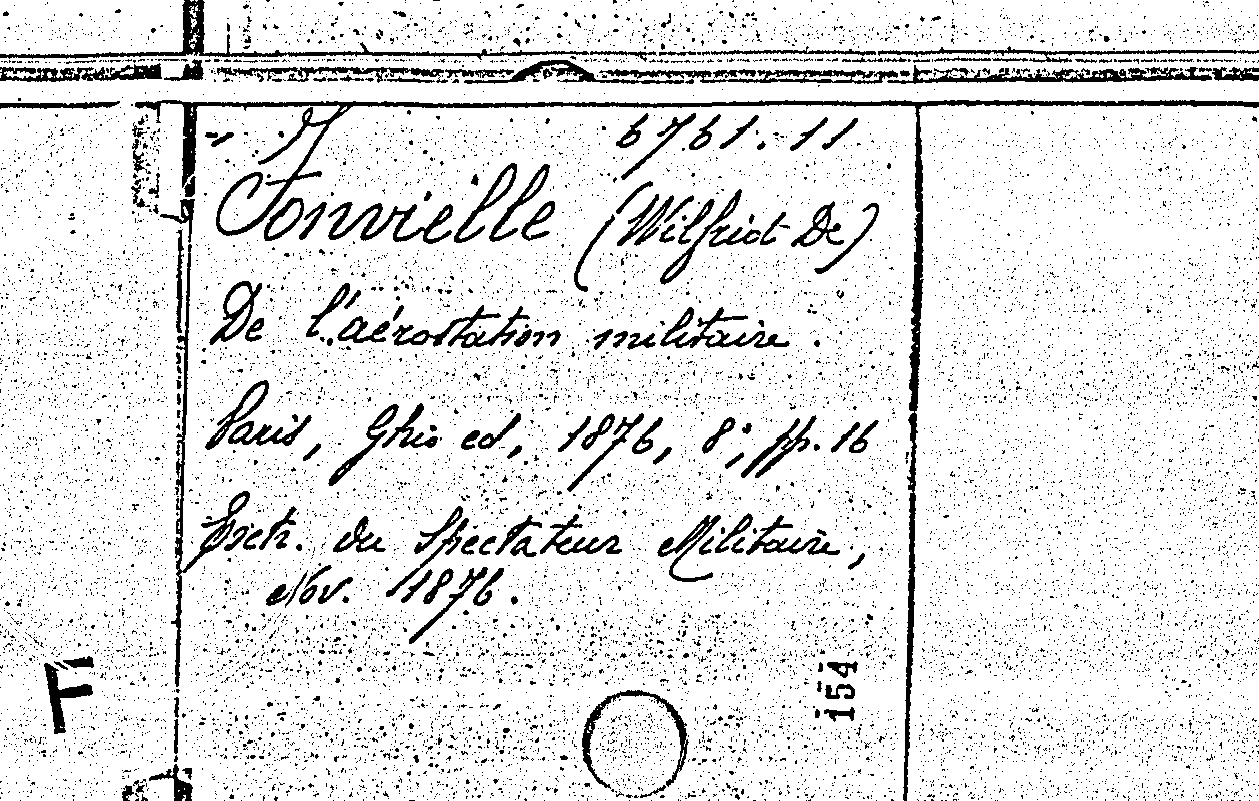 6761.11
Fonvielle (Wilfrid De)
De l'aérostation militaire.
Paris, Ghio ed, 1876, 8°; pp. 16
Extr. du Spectateur Militaire,
Nov. 1876.
F
154